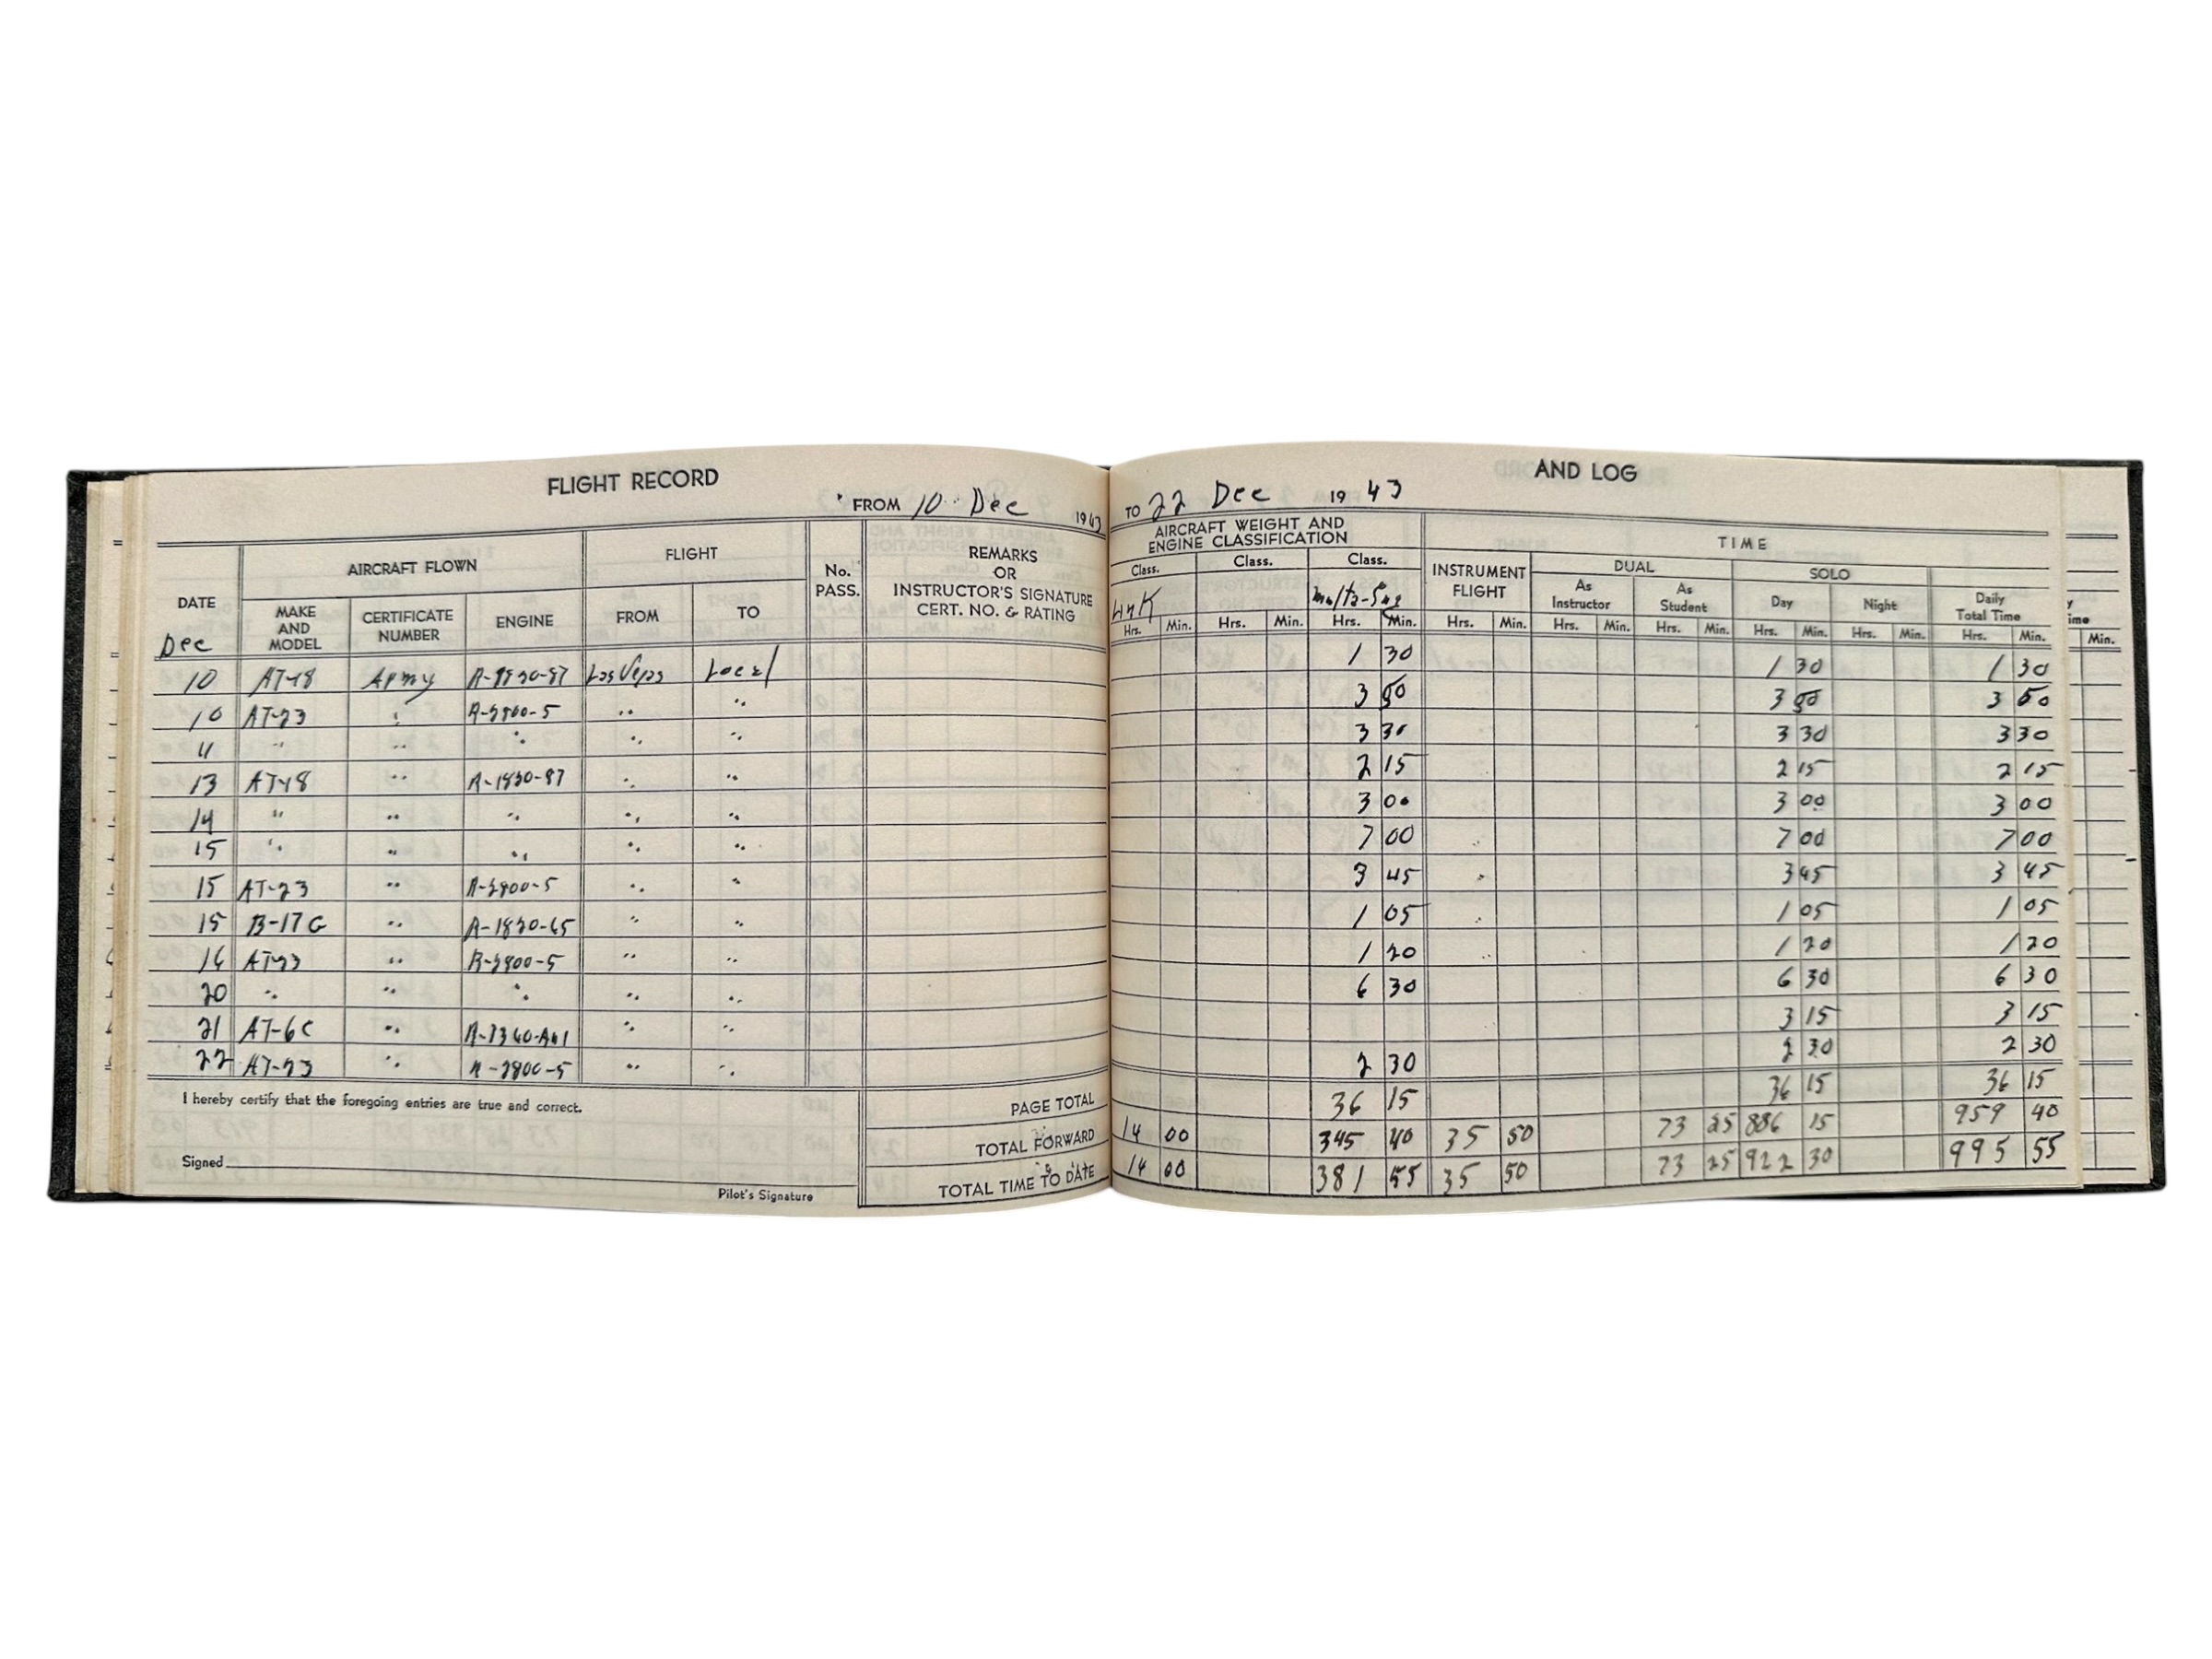 FLIGHT RECORD AND LOG
FROM 10 Dec 1943 TO 22 Dec 1943
DATE AIRCRAFT FLOWN FLIGHT No. PASS. REMARKS OR INSTRUCTOR'S SIGNATURE CERT. NO. & RATING AIRCRAFT WEIGHT AND ENGINE CLASSIFICATION TIME
MAKE AND MODEL CERTIFICATE NUMBER ENGINE FROM TO Class. Class. Class. INSTRUMENT FLIGHT DUAL SOLO
As Instructor As Student Day Night Daily Total Time
Dec Link Multi-Eng
Hrs. Min. Hrs. Min. Hrs. Min. Hrs. Min. Hrs. Min. Hrs. Min. Hrs. Min. Hrs. Min. Hrs. Min. Min.
10 AT-18 Army Las Vegas Local 1 30 1 30 1 30
10 AT-23 " R-2800-5 " " 3 50 3 50 3 50
11 " " " " " 3 30 3 30 3 30
13 AT-18 " R-1820-87 " " 2 15 2 15 2 15
14 " " " " " 3 00 3 00 3 00
15 " " " " " 7 00 7 00 7 00
15 AT-23 " R-2800-5 " " 3 45 3 45 3 45
15 B-17G " R-1820-65 " " 1 05 1 05 1 05
16 AT-23 " R-2800-5 " " 1 20 1 20 1 20
20 " " " " " 6 30 6 30 6 30
21 AT-6C " R-1340-AN1 " " 3 15 3 15
22 AT-23 " R-2800-5 " " 2 30 2 30 2 30
I hereby certify that the foregoing entries are true and correct. PAGE TOTAL 36 15 36 15 36 15
TOTAL FORWARD 14 00 345 40 35 50 73 25 886 15 959 40
Signed TOTAL TIME TO DATE 14 00 381 55 35 50 73 25 922 30 995 55
Pilot's Signature